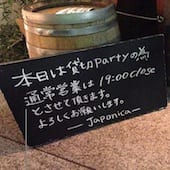 本日は貸切partyの為
通常営業は19:00close
とさせて頂きます。
よろしくお願いします。
—Japonica—